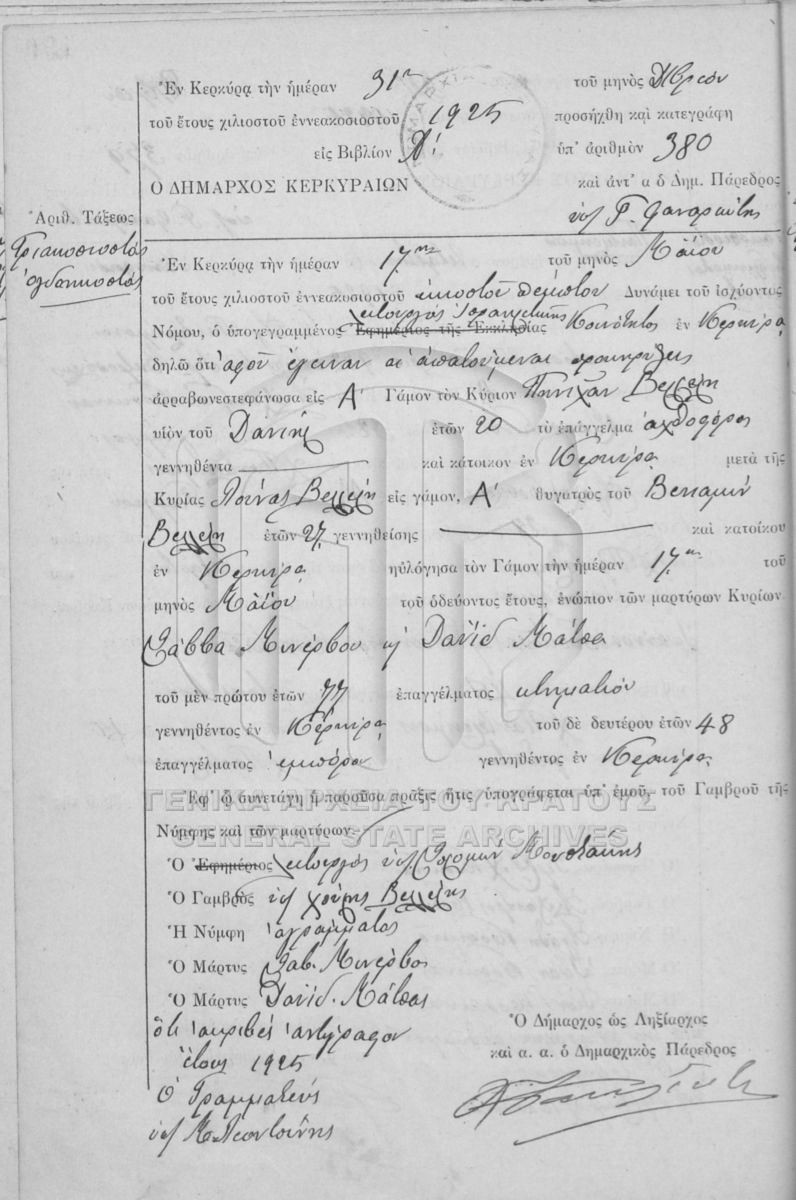 Ἐν Κερκύρᾳ τὴν ἡμέραν 31ην τοῦ μηνὸς
τοῦ ἔτους χιλιοστοῦ ἐννεακοσιοστοῦ 1925 προσήχθη καὶ κατεγράφη
εἰς Βιβλίον Α' ὑπ' ἀριθμὸν 380
Ο ΔΗΜΑΡΧΟΣ ΚΕΡΚΥΡΑΙΩΝ καὶ ἀντ' α ὁ Δημ. Πάρεδρος
Ἀριθ. Τάξεως
Τριακοσιοστὸς
ὀγδοηκοστὸς
Ἐν Κερκύρᾳ τὴν ἡμέραν 17ην τοῦ μηνὸς Μαΐου
τοῦ ἔτους χιλιοστοῦ ἐννεακοσιοστοῦ εἰκοστοῦ πέμπτου Δυνάμει τοῦ ἰσχύοντος
λειτουργὸς Ἰσραηλιτικῆς
Νόμου, ὁ ὑπογεγραμμένος Ἐφημέριος τῆς Ἐκκλησίας Κοινότητος ἐν Κερκύρᾳ
δηλῶ ὅτι ἀφοῦ ἔγειναν αἱ ἀπαιτούμεναι προκηρύξεις
ἀρραβωνεστεφάνωσα εἰς Α' Γάμον τὸν Κύριον Βελλέλη
υἱὸν τοῦ Δανιὴλ ἐτῶν 20 τὸ ἐπάγγελμα ἀχθοφόρος
γεννηθέντα καὶ κάτοικον ἐν Κερκύρᾳ μετὰ τῆς
Κυρίας Βελλέλη εἰς γάμον, Α' θυγατρὸς τοῦ Βενιαμὶν
Βελλέλη ἐτῶν 27 γεννηθείσης καὶ κατοίκου
ἐν Κερκύρᾳ ηὐλόγησα τὸν Γάμον τὴν ἡμέραν 17ην τοῦ
μηνὸς Μαΐου τοῦ ὁδεύοντος ἔτους, ἐνώπιον τῶν μαρτύρων Κυρίων
Σάββα Μινέρβου κ Δαυΐδ Μάτσα
τοῦ μὲν πρώτου ἐτῶν 77 ἐπαγγέλματος κτηματίου
γεννηθέντος ἐν Κέρκυρᾳ τοῦ δὲ δευτέρου ἐτῶν 48
ἐπαγγέλματος ἐμπόρου γεννηθέντος ἐν Κερκύρᾳ
Ἐφ' ᾧ συνετάγη ἡ παροῦσα πρᾶξις ἥτις ὑπογράφεται ὑπ' ἐμοῦ, τοῦ Γαμβροῦ τῆς
ΓΕΝΙΚΑ ΑΡΧΕΙΑ ΤΟΥ ΚΡΑΤΟΥΣ
Νύμφης καὶ τῶν μαρτύρων
GENERAL STATE ARCHIVES
Ὁ Ἐφημέριος λειτουργὸς υ/ Σολομὼν Μουστάκης
Ὁ Γαμβρὸς υ/ Βελλέλης
Ἡ Νύμφη ἀγράμματος
Ὁ Μάρτυς Σαβ. Μινέρβος
Ὁ Μάρτυς Δαυΐδ Μάτσας
Ὅτι ἀκριβὲς ἀντίγραφον
ἔτους 1925
Ὁ Γραμματεύς
Ὁ Δήμαρχος ὡς Ληξίαρχος
καὶ α. α. ὁ Δημαρχικὸς Πάρεδρος